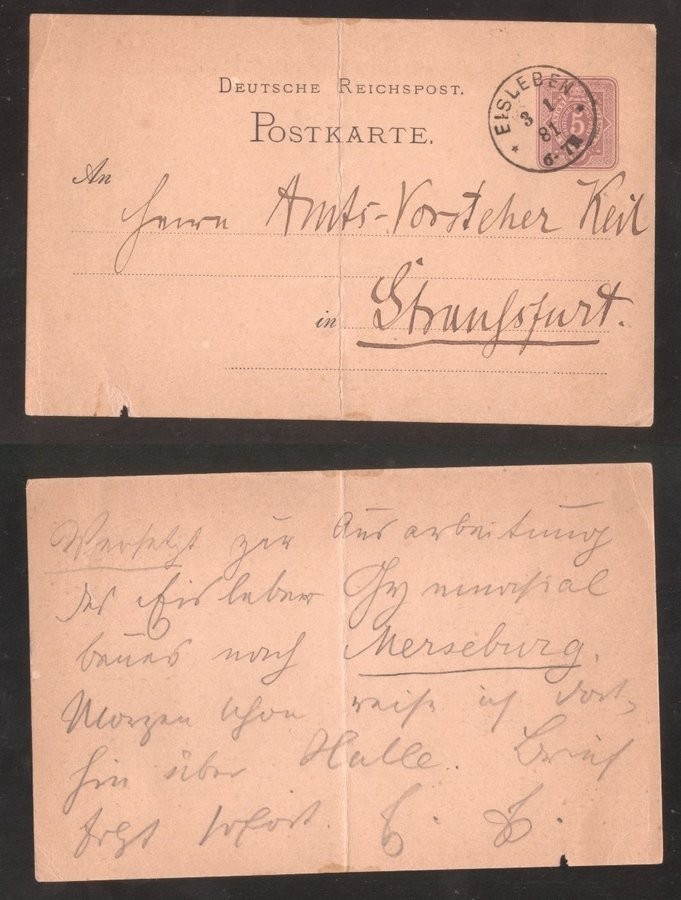 DEUTSCHE REICHSPOST.
POSTKARTE.
EISLEBEN
3 1
81
6-7N
5
An
Herrn Amts-Vorsteher Keil
in Straußfurt.
Versetzt zur Ausarbeitung
des Eisleber Gymnasial
baues nach Merseburg.
Morgen schon reise ich dort-
hin über Halle. Brief
folgt sofort.